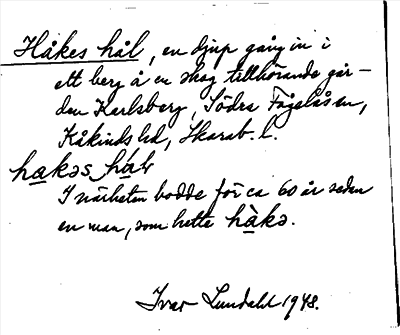 Håkes hål, en djup gång in i
ett berg å en skog tillhörande går-
den Karlsberg, Södra Fågelåsen,
Kåkinds hd, Skarab. l.
hakəs hål
I närheten bodde för ca 60 år sedan
en man, som hette håkə.
Ivar Lundahl 1948.